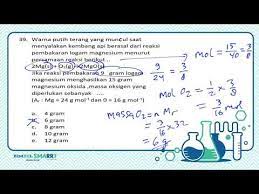 39. Warna putih terang yang muncul saat
menyalakan kembang api berasal dari reaksi
pembakaran logam magnesium menurut
persamaan reaksi berikut...
2Mg(s) + O₂(g) → 2MgO(s)
Jika reaksi pembakaran 9 gram logam
magnesium dihasilkan 15 gram magnesium
oksida, massa oksigen yang
diperlukan sebanyak ....
(Ar : Mg = 24 g mol⁻¹ dan O = 16 g mol⁻¹)
c. 6 gram
d. 8 gram
e. 12 gram
mol = 15/40 = 3/8
9/24 = 3/8
mol O₂ = 1/2 × 3/8
= 3/16 mol
massa O₂ = n × Mr
= 3/16 × 32
= 6 gram
BIMBEL SMART